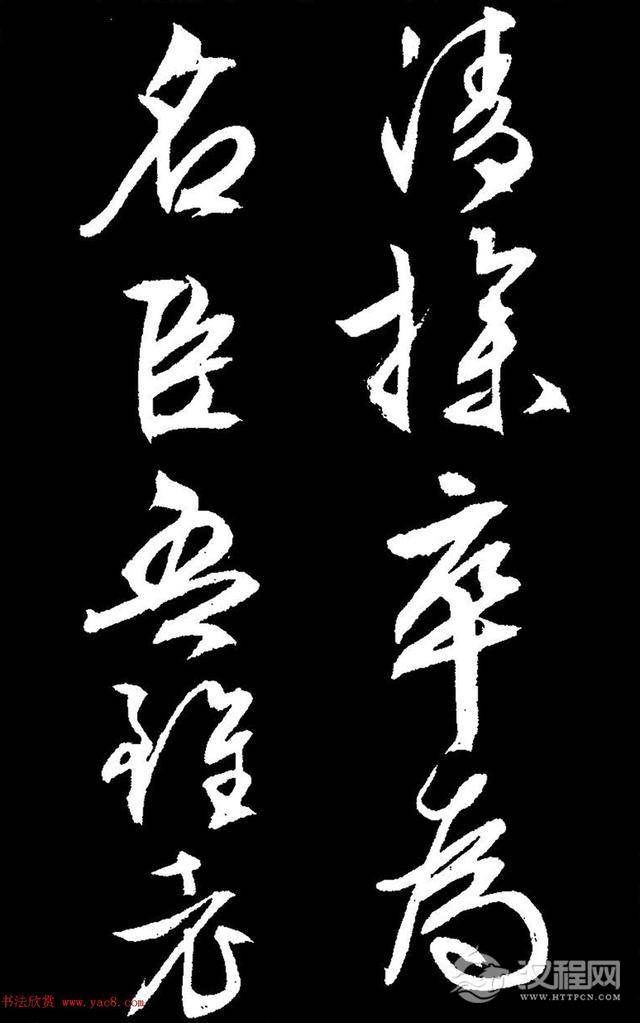 清操卒為
名臣吾雖老
书法欣赏 www.yac8.com
汉程网
WWW.HTTPCN.COM